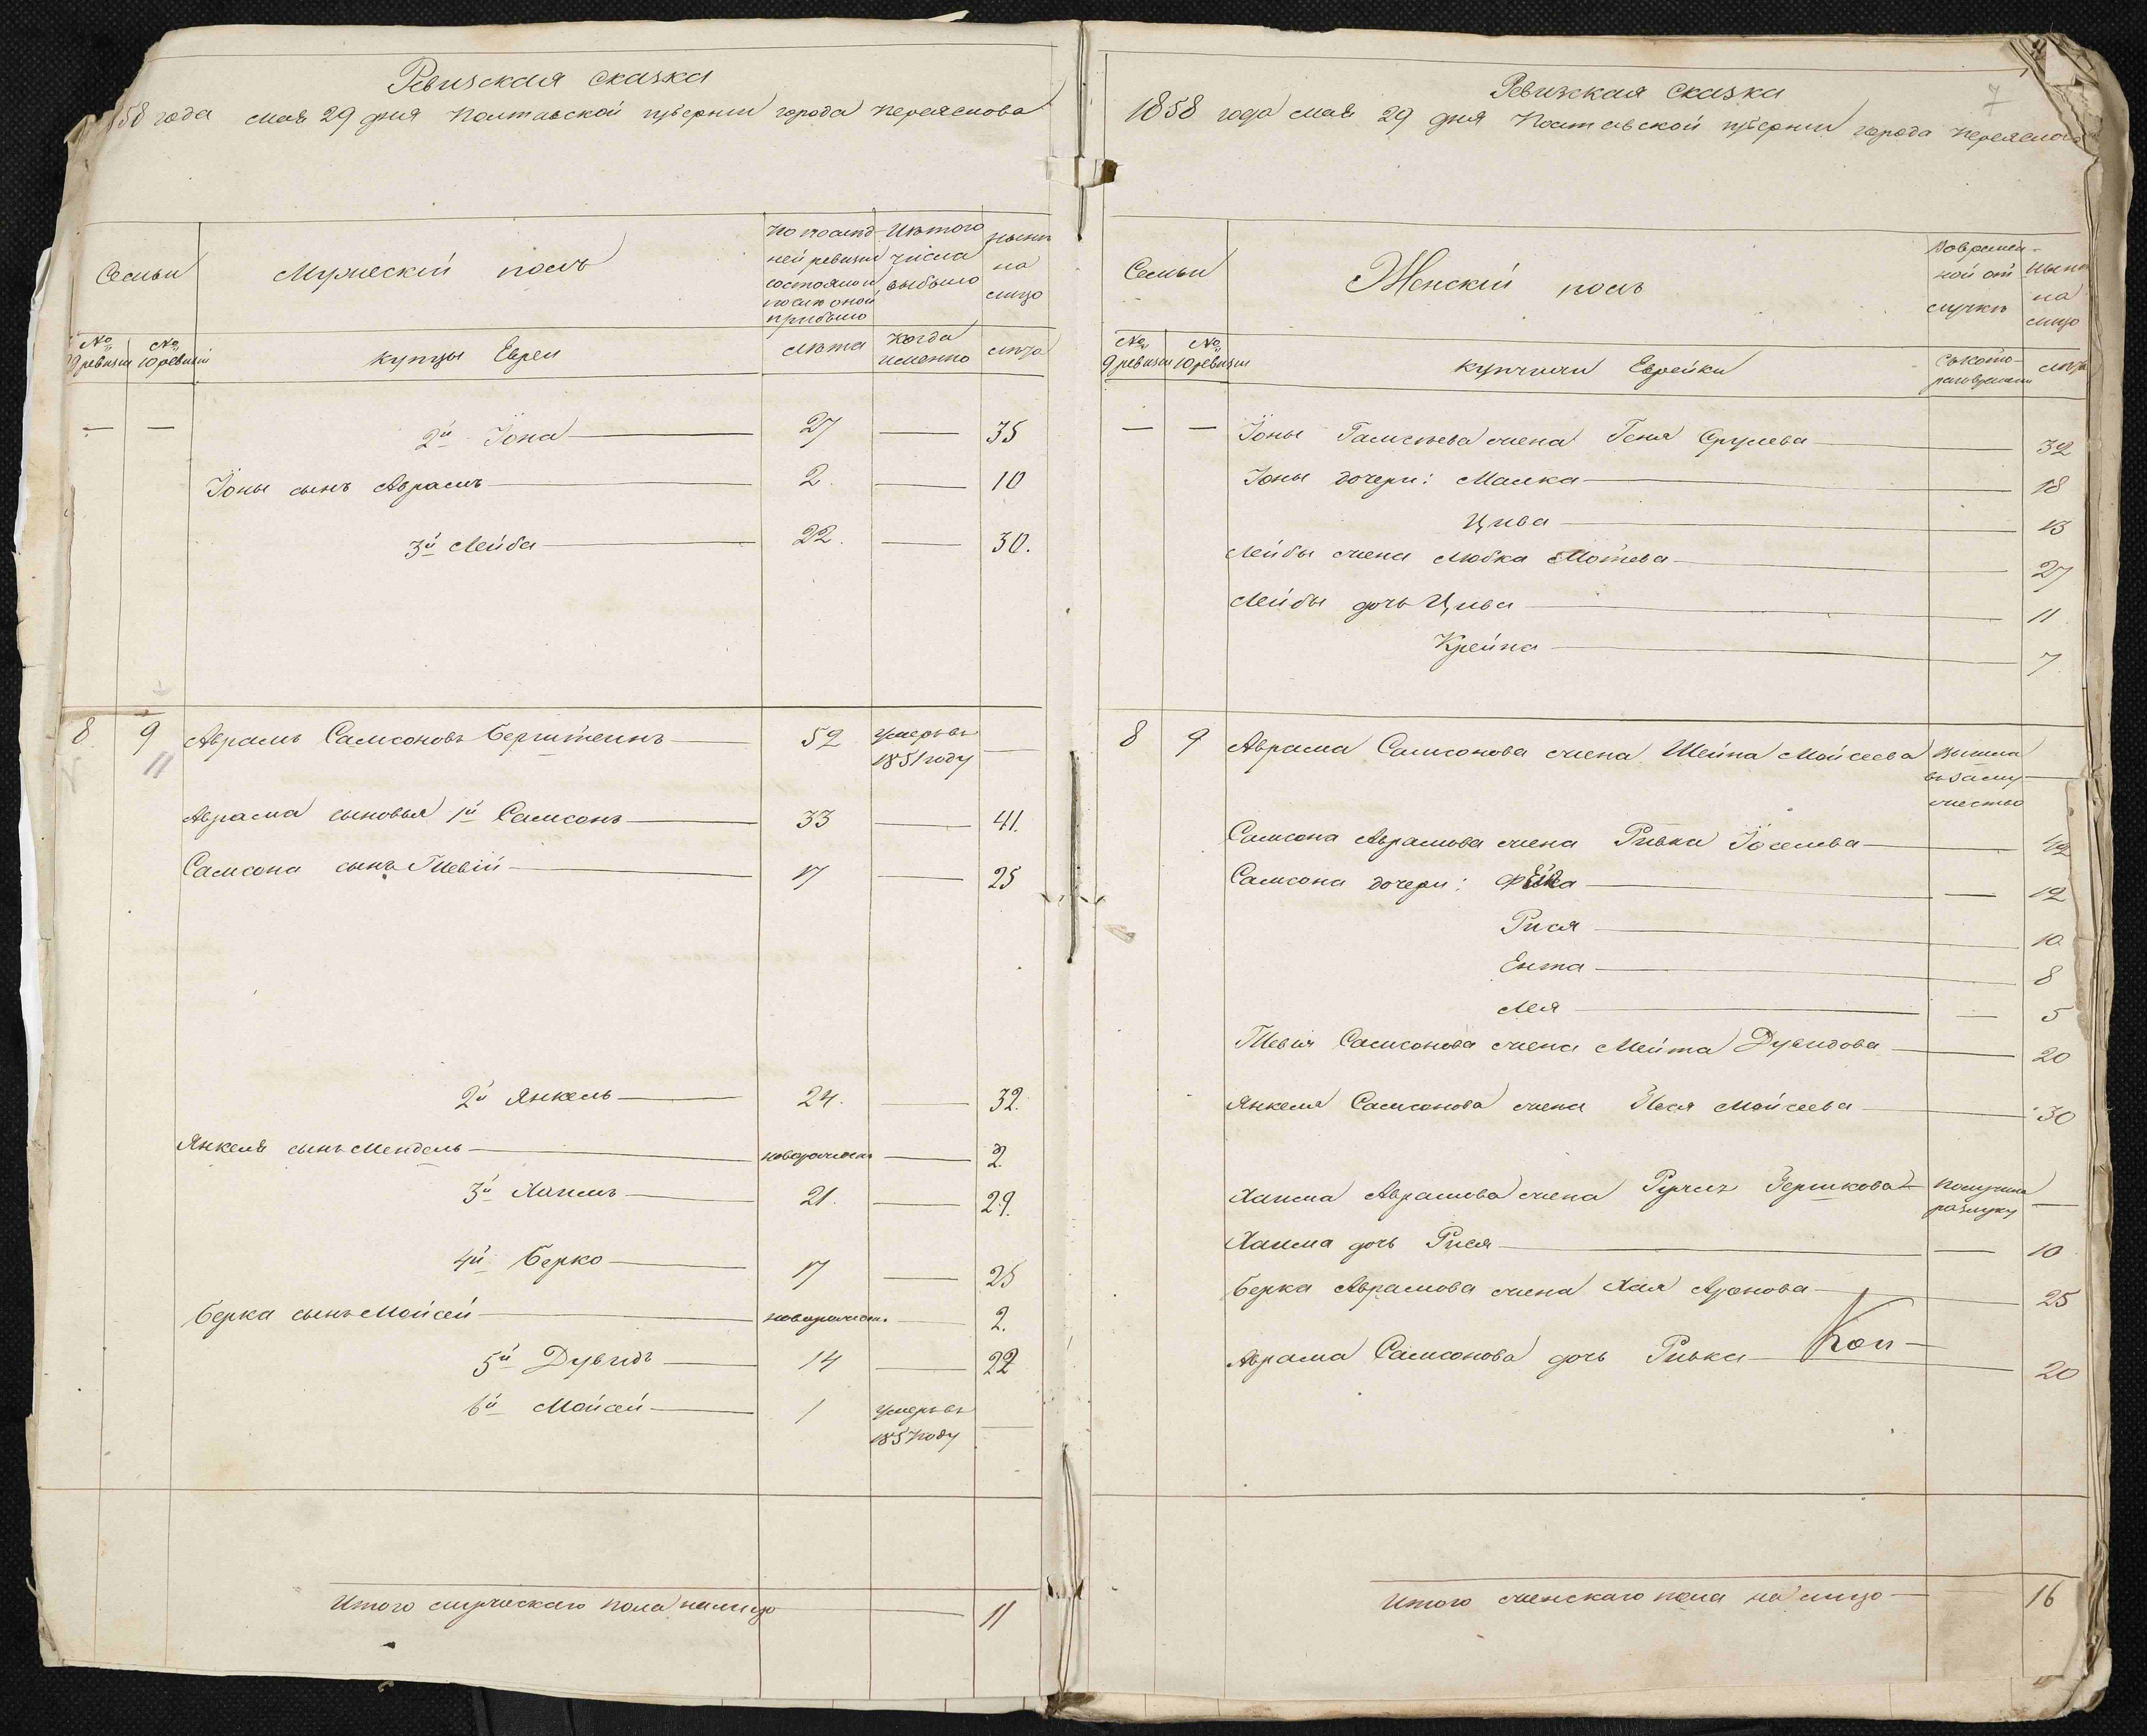 Ревизская сказка
858 года мая 29 дня Полтавской губернии города Переяслова
Семьи
Мужескій полъ
По послѣд-
ней ревизіи
состояло и
послѣ оной
прибыло
Изъ того
числа
выбыло
нынѣ
на
лицо
№ 9 ревизіи
№ 10 ревизіи
купцы Евреи
лѣта
когда
именно
лѣта
— — 2й Іона — 27 — 35
Іоны сынъ Абрамъ — 2. — 10
3й Лейба — 22. — 30.
8. 9 Абрамъ Самсоновъ Берштеинъ — 52 умеръ въ —
11 1851 году
Абрама сыновья 1й Самсонъ — 33 — 41.
Самсона сынъ Тевій — 17 — 25
2й Янкель — 24. — 32.
Янкеля сынъ Мендель — новорожденъ — 2.
3й Хаимъ — 21. — 29.
4й Берко — 17 — 25
Берка сынъ Мойсей — новорожден. — 2.
5й Дувидъ — 14 — 22
6й Мойсей — 1 умеръ въ —
1857 году
Итого мужескаго пола на лицо — 11
7
Ревизская сказка
1858 года мая 29 дня Полтавской губернии города Переяслова
Семьи
Женскій полъ
Во времен-
ной от
лучкѣ
нынѣ
на
лицо
№ 9 ревизіи
№ 10 ревизіи
купчихи Еврейки
съ кото-
раго времени
лѣта
— — Іоны жена Геня Срулева — 32
Іоны дочери: Малка — 18
Цива — 13
Лейбы жена Любка Мотева — 27
Лейбы дочь Цива — 11
Крейна — 7.
8 9 Абрама Самсонова жена Шейна Мойсеева вышла
въ заму- —
жество
Самсона Абрамова жена Ривка Іоселева — 42
Самсона дочери: — — 12
Рися — 10.
Ента — 8
Лея — — 5
Тевія Самсонова жена Мейта Дувидова — 20
Янкеля Самсонова жена Мойсеева — 30
Хаима Абрамова жена Гершкова — получила
разлуку —
Хаима дочь Рися — — 10
Берка Абрамова жена Хая Аронова — 25
Абрама Самсонова дочь Ривка — 20
Коп-
Итого женскаго пола на лицо — 16